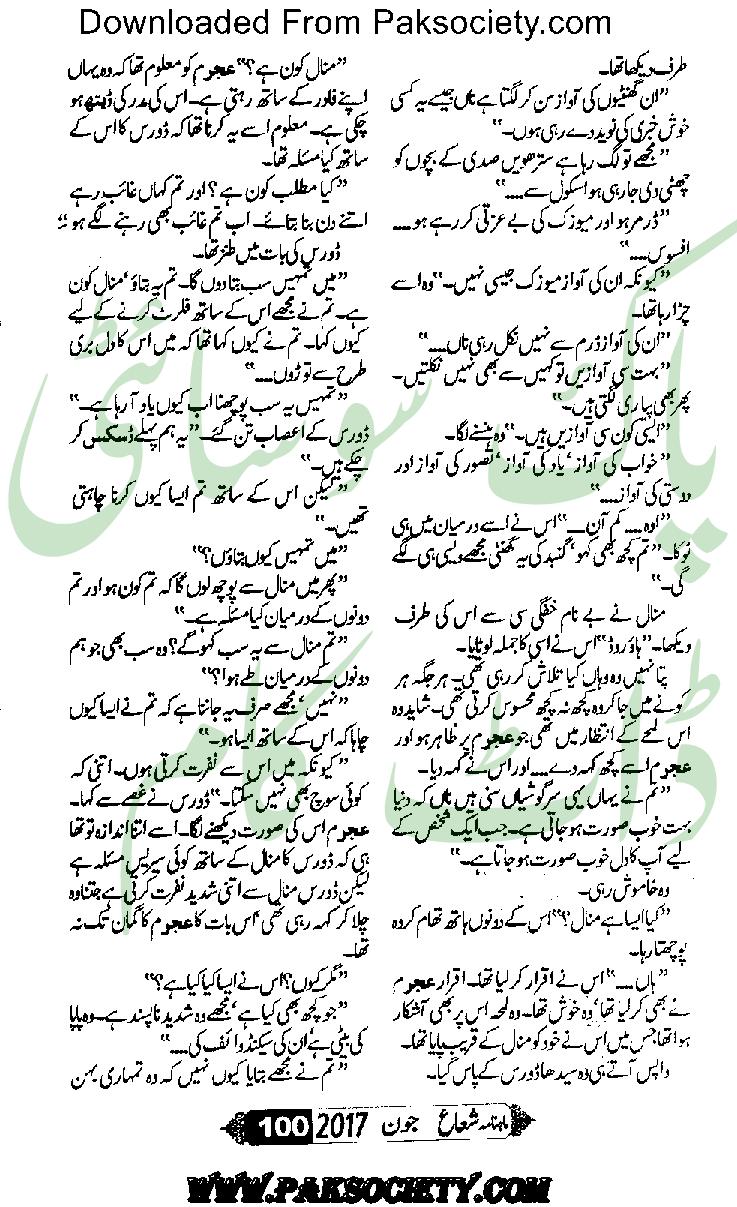 Downloaded From Paksociety.com
طرف دیکھا تھا۔
”ان گھنٹیوں کی آواز سن کر لگتا ہے ناں جیسے یہ کسی
خوش خبری کی نوید دے رہی ہوں۔“
”مجھے تو لگ رہا ہے سترھویں صدی کے بچوں کو
چھٹی دی جا رہی ہو اسکول سے....“
”ڈرمر ہو اور میوزک کی بے عزتی کر رہے ہو....
افسوس....“
”کیونکہ ان کی آواز میوزک جیسی نہیں۔“ وہ اسے
چڑا رہا تھا۔
”ان کی آواز ڈرم سے نہیں نکل رہی ناں....“
”بہت سی آوازیں تو کہیں سے بھی نہیں نکلتیں۔
پھر بھی پیاری لگتی ہیں۔“
”ایسی کون سی آوازیں ہیں۔“ وہ ہنسنے لگا۔
”خواب کی آواز‘ یاد کی آواز‘ تصور کی آواز اور
دوستی کی آواز....“
”اوہ.... کم آن....“ اس نے اسے درمیان میں ہی
ٹوکا۔ ”تم کچھ بھی کہو‘ گنبد کی یہ گھنٹی مجھے ویسی ہی لگے
گی۔“
منال نے بے نام خفگی سی سے اس کی طرف
دیکھا۔ ”ہاؤ روڈ“ اس نے اسی کا جملہ لوٹایا۔
پتا نہیں وہ وہاں کیا تلاش کر رہی تھی۔ ہر جگہ ہر
کونے میں جا کر وہ کچھ نہ کچھ محسوس کرتی تھی۔ شاید وہ
اس لمحے کے انتظار میں تھی جو عجرم پر ظاہر ہو اور
عجرم اسے کچھ کہہ دے.... اور اس نے کہہ دیا۔
”تم نے یہاں یہی سرگوشیاں سنی ہیں ناں کہ دنیا
بہت خوب صورت ہو جاتی ہے۔ جب ایک شخص کے
لیے آپ کا دل خوب صورت ہو جاتا ہے۔“
وہ خاموش رہی۔
”کیا ایسا ہے منال؟“ اس کے دونوں ہاتھ تھام کر وہ
پوچھتا رہا۔
”ہاں....“ اس نے اقرار کر لیا تھا۔ اقرار عجرم
نے بھی کر لیا تھا‘ وہ خوش تھا۔ وہ لمحہ اس پر بھی آشکار
ہوا تھا جس میں اس نے خود کو منال کے قریب پایا تھا۔
واپس آتے ہی وہ سیدھا ڈورس کے پاس گیا۔
”منال کون ہے؟“ عجرم کو معلوم تھا کہ وہ یہاں
اپنے فادر کے ساتھ رہتی ہے۔ اس کی مدر کی ڈیتھ ہو
چکی ہے۔ معلوم اسے یہ کرنا تھا کہ ڈورس کا اس کے
ساتھ کیا مسئلہ تھا۔
”کیا مطلب کون ہے؟ اور تم کہاں غائب رہے
اتنے دن بنا بتائے۔ اب تم غائب بھی رہنے لگے ہو“
ڈورس کی بات میں طنز تھا۔
”میں تمہیں سب بتا دوں گا۔ تم یہ بتاؤ‘ منال کون
ہے۔ تم نے مجھے اس کے ساتھ فلرٹ کرنے کے لیے
کیوں کہا۔ تم نے کیوں کہا تھا کہ میں اس کا دل بری
طرح سے توڑوں....“
”تمہیں یہ سب پوچھنا اب کیوں یاد آ رہا ہے۔“
ڈورس کے اعصاب تن گئے۔ ”یہ ہم پہلے ڈسکس کر
چکے ہیں۔“
”لیکن اس کے ساتھ تم ایسا کیوں کرنا چاہتی
تھیں۔“
”میں تمہیں کیوں بتاؤں؟“
”پھر میں منال سے پوچھ لوں گا کہ تم کون ہو اور تم
دونوں کے درمیان کیا مسئلہ ہے۔“
”تم منال سے یہ سب کہو گے؟ وہ سب بھی جو ہم
دونوں کے درمیان طے ہوا؟“
”نہیں‘ مجھے صرف یہ جاننا ہے کہ تم نے ایسا کیوں
چاہا کہ اس کے ساتھ ایسا ہو۔“
”کیونکہ میں اس سے نفرت کرتی ہوں۔ اتنی کہ
کوئی سوچ بھی نہیں سکتا۔“ ڈورس نے غصے سے کہا۔
عجرم اس کی صورت دیکھنے لگا۔ اسے اتنا اندازہ تو تھا
ہی کہ ڈورس کا منال کے ساتھ کوئی سیریس مسئلہ ہے
لیکن ڈورس منال سے اتنی شدید نفرت کرتی ہے جتنا وہ
چلا کر کہہ رہی تھی‘ اس بات کا عجرم کا گمان تک نہ
تھا۔
”مگر کیوں؟ اس نے ایسا کیا کیا ہے؟“
”جو کچھ بھی کیا ہے‘ مجھے وہ شدید ناپسند ہے۔ وہ پاپا
کی بیٹی ہے‘ ان کی سیکنڈ وائف کی....“
”تم نے مجھے بتایا کیوں نہیں کہ وہ تمہاری بہن
ماہنامہ شعاع جون 2017 100
WWW.PAKSOCIETY.COM
پاک سوسائٹی
ڈاٹ کام